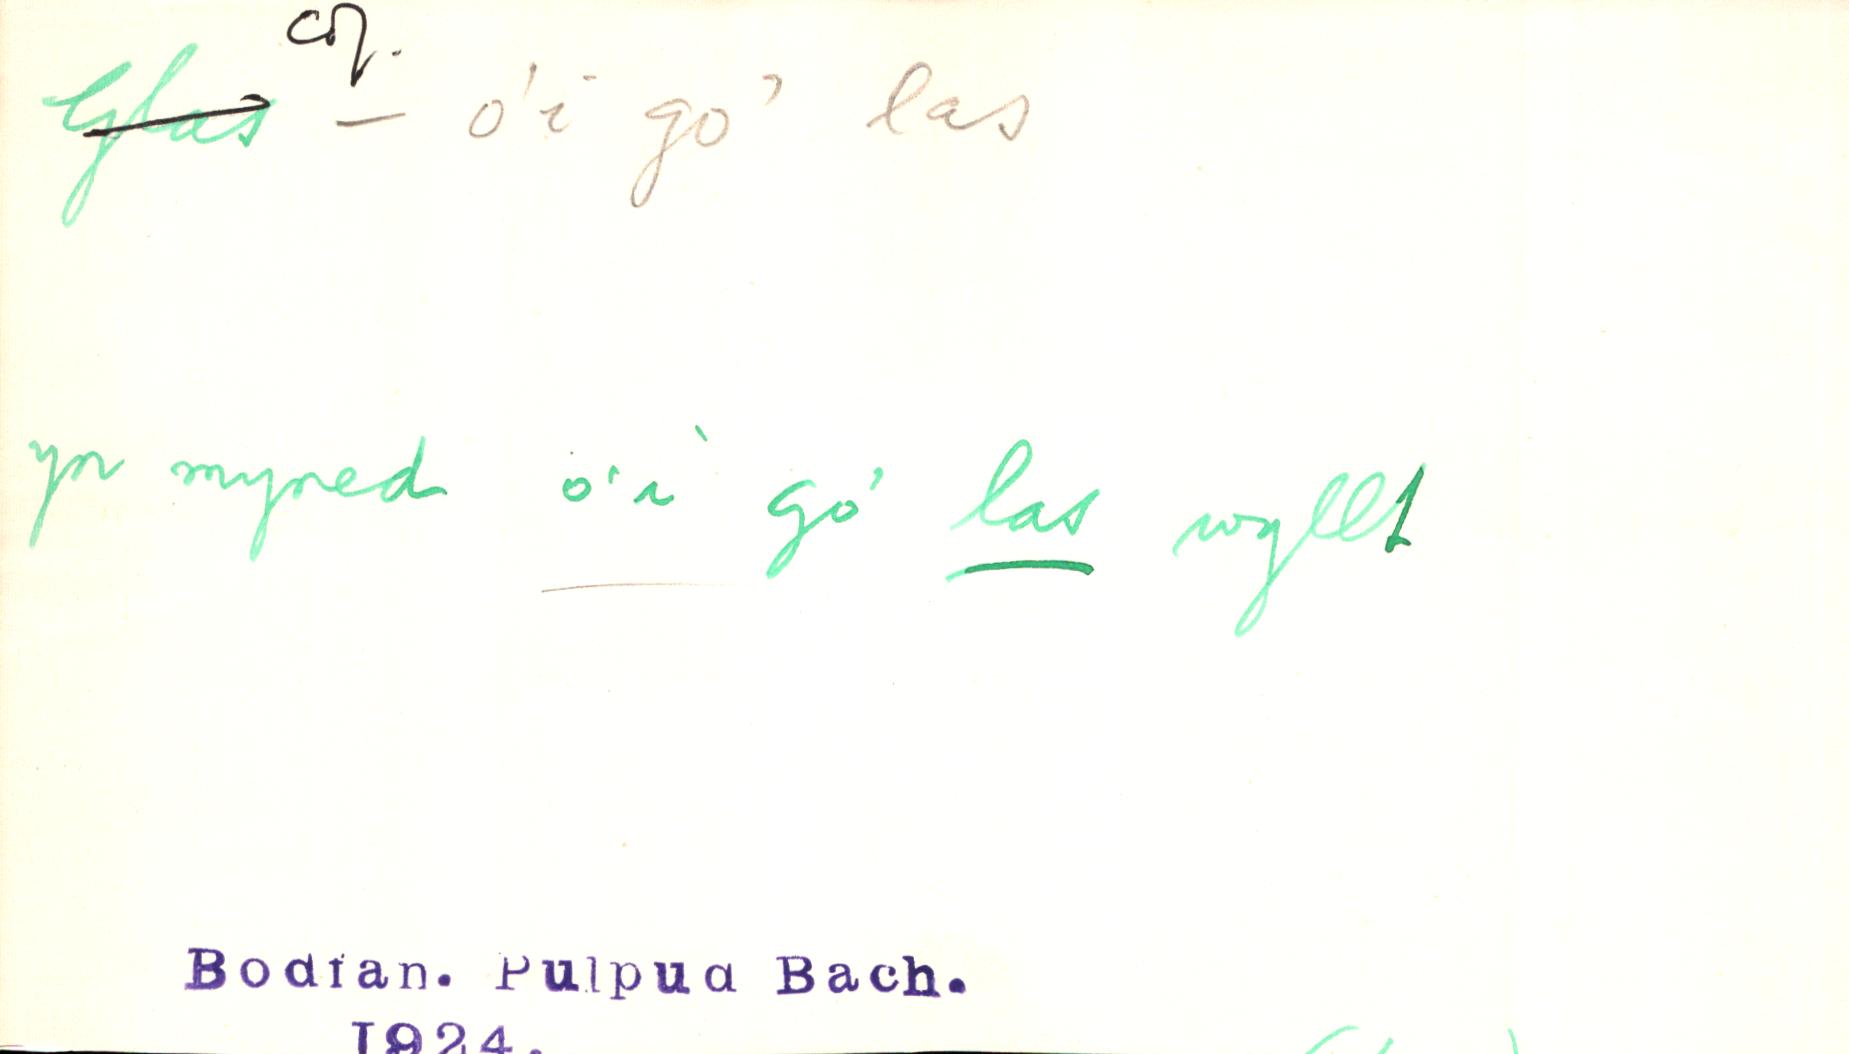 cof.
Glas — o'i go' las
yn myned o'i go' las wyllt
Bodfan. Pulpud Bach.
1924.